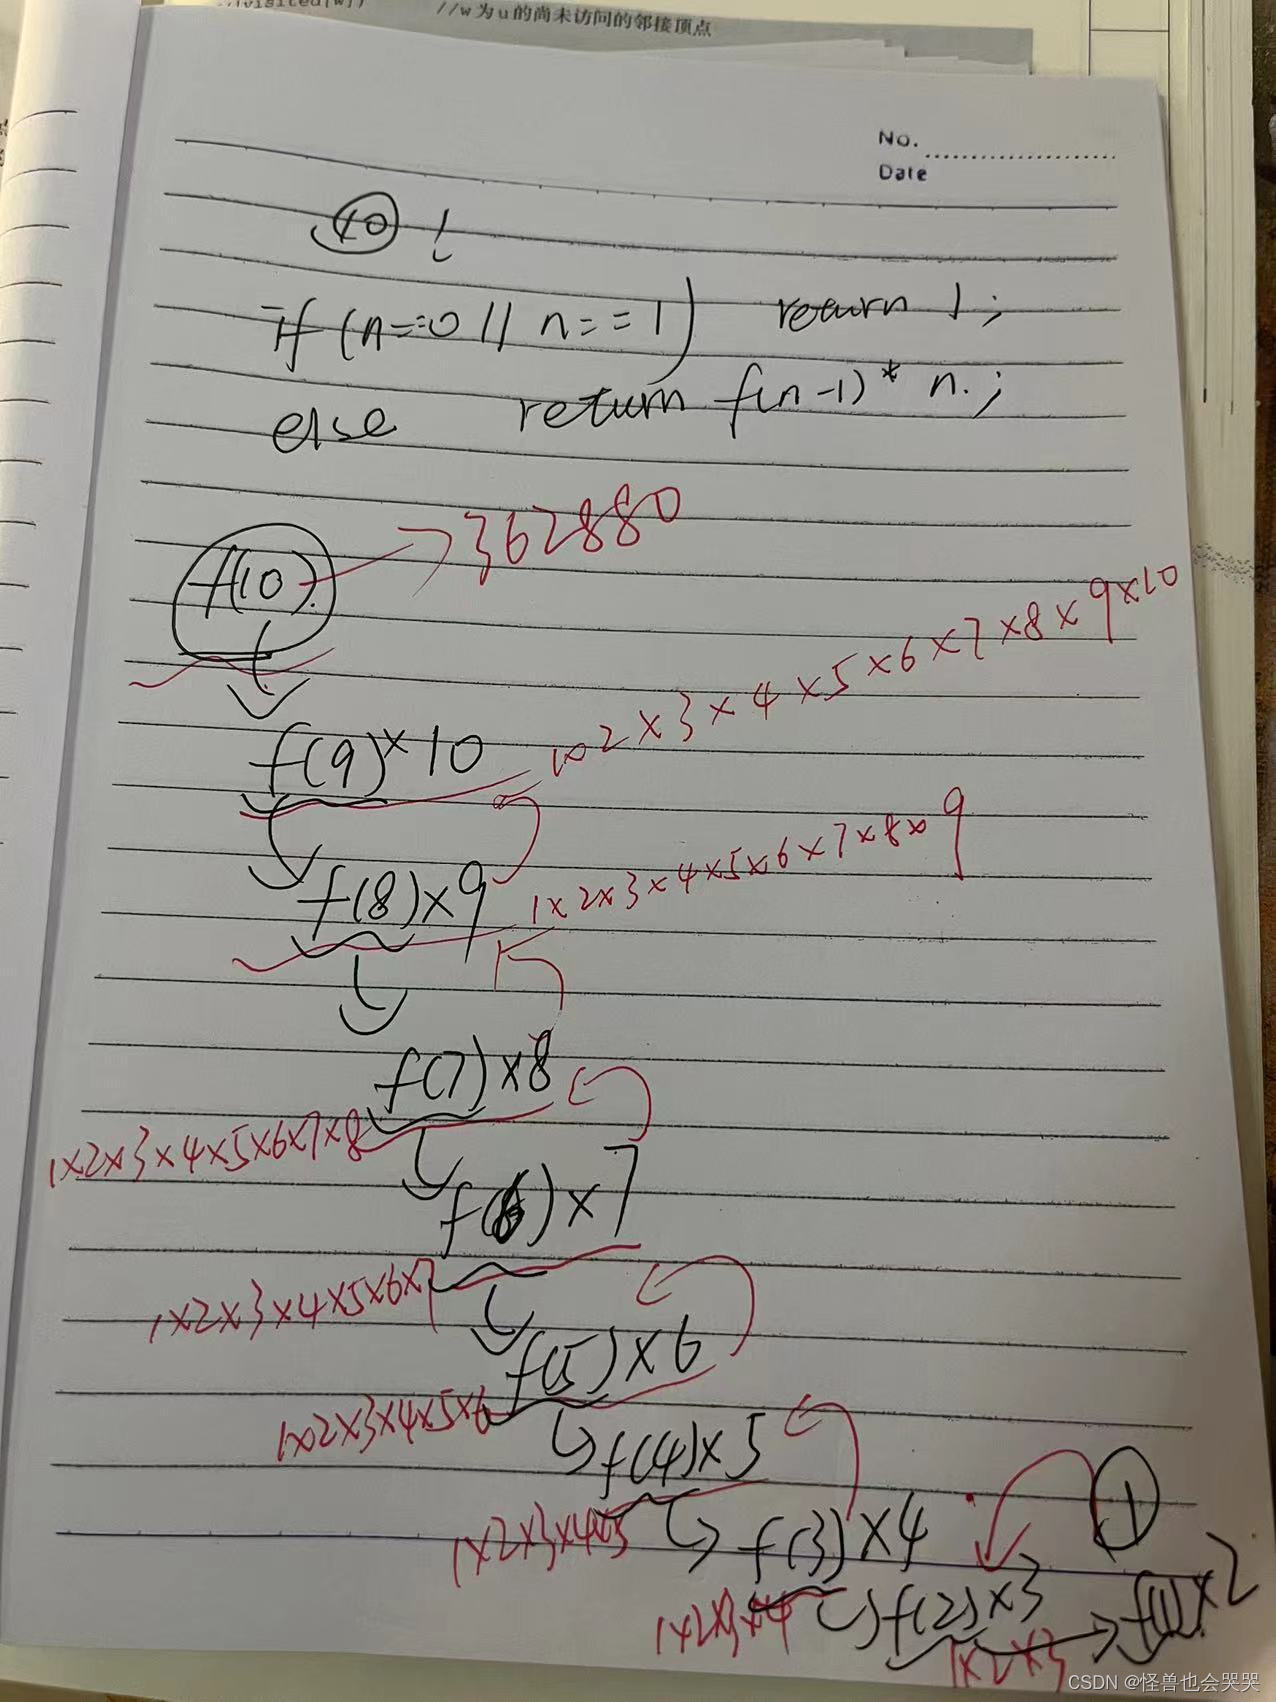 //w为u的尚未访问的邻接顶点
No.
Date
10!
if(n==0 || n==1) return 1;
else return f(n-1)* n.;
f(10)
362880
f(9)×10
1×2×3×4×5×6×7×8×9×10
f(8)×9
1×2×3×4×5×6×7×8×9
f(7)×8
1×2×3×4×5×6×7×8
f(6)×7
1×2×3×4×5×6×7
f(5)×6
1×2×3×4×5×6
f(4)×5
1×2×3×4×5
f(3)×4
1
1×2×3×4
f(2)×3
f(1)×2
1×2×3
CSDN @怪兽也会哭哭